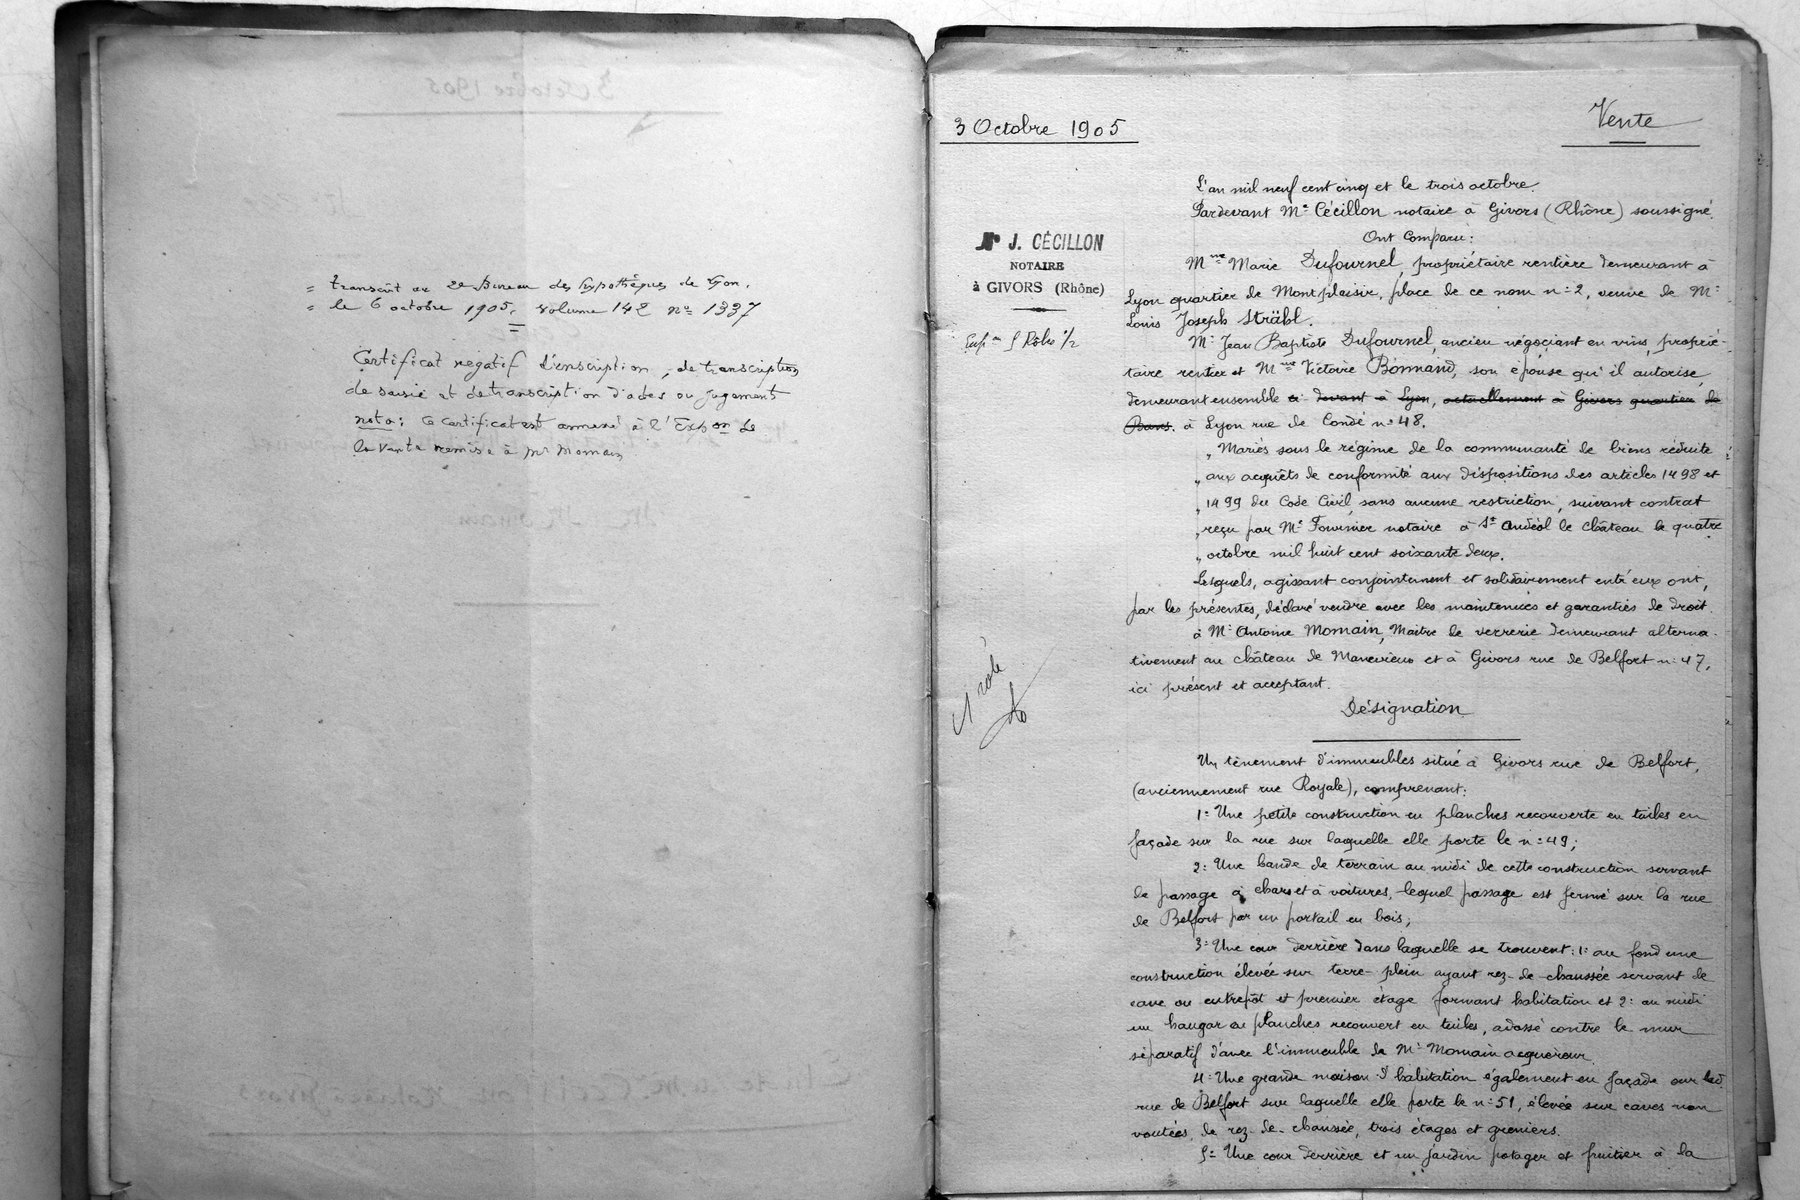 = transcrit au 2e Bureau des hypothèques de Lyon.
= le 6 octobre 1905, volume 142 no 1337
Certificat négatif d'inscription, de transcription
de saisie et de transcription d'actes ou jugement
nota: ce certificat est annexé à l'Expon de
la vente remise à Mr Momain
3 Octobre 1905
Vente
Me J. CÉCILLON
NOTAIRE
à GIVORS (Rhône)
1 rôle
L'an mil neuf cent cinq et le trois octobre.
Pardevant Me Cécillon notaire à Givors (Rhône) soussigné.
Ont Comparu:
Mme Marie Dufournel, propriétaire rentière demeurant à
Lyon quartier de Montplaisir, place de ce nom no 2, veuve de Mr
Louis Joseph Strähl.
Mr Jean Baptiste Dufournel, ancien négociant en vins, proprié-
taire rentier et Mme Victoire Bonnand, son épouse qu'il autorise,
demeurant ensemble ci devant à Lyon, actuellement à Givors quartier de
Bans. à Lyon rue de Condé no 48.
„ Mariés sous le régime de la communauté de biens réduite
„ aux acquêts de conformité aux dispositions des articles 1498 et
„ 1499 du Code Civil, sans aucune restriction, suivant contrat
„ reçu par Me Fournier notaire à St Andéol le Château le quatre
„ octobre mil huit cent soixante deux.
Lesquels, agissant conjointement et solidairement entre eux ont,
par les présentes, déclaré vendre avec les maintenues et garanties de droit.
à Mr Antoine Momain, Maître de verrerie demeurant alterna-
tivement au château de Manevieux et à Givors rue de Belfort no 47,
ici présent et acceptant.
Désignation
Un tènement d'immeubles situé à Givors rue de Belfort,
(anciennement rue Royale), comprenant:
1o Une petite construction en planches recouverte en tuiles en
façade sur la rue sur laquelle elle porte le no 49;
2o Une bande de terrain au midi de cette construction servant
de passage à chars et à voitures, lequel passage est fermé sur la rue
de Belfort par un portail en bois;
3o Une cour derrière dans laquelle se trouvent: 1o au fond une
construction élevée sur terre-plein ayant rez-de-chaussée servant de
cave ou entrepôt et premier étage formant habitation et 2o au midi
un hangar en planches recouvert en tuiles, adossé contre le mur
séparatif d'avec l'immeuble de Mr Momain acquéreur
4o Une grande maison d'habitation également en façade sur lad
rue de Belfort sur laquelle elle porte le no 51, élevée sur caves non
voutées, de rez-de-chaussée, trois étages et greniers.
5o Une cour derrière et un jardin potager et fruitier à la